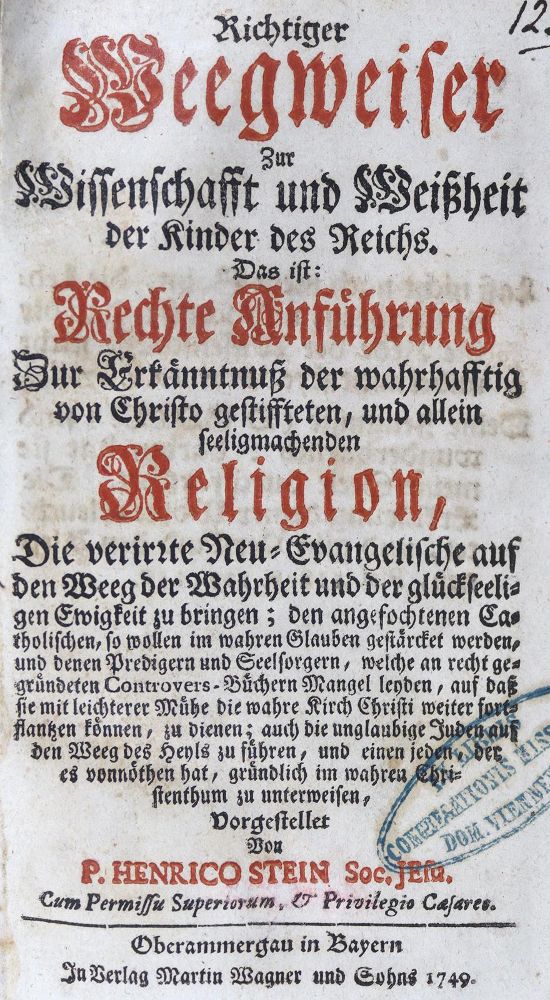 12.
Richtiger
Weegweiser
Zur
Wissenschafft und Weißheit
der Kinder des Reichs.
Das ist:
Rechte Anführung
Zur Erkänntnuß der wahrhafftig
von Christo gestiffteten, und allein
seeligmachenden
Religion,
Die verirrte Neu-Evangelische auf
den Weeg der Wahrheit und der glückseeli-
gen Ewigkeit zu bringen; den angefochtenen Ca-
tholischen, so wollen im wahren Glauben gestärcket werden,
und denen Predigern und Seelsorgern, welche an recht ge-
gründeten Controvers-Büchern Mangel leyden, auf daß
sie mit leichterer Mühe die wahre Kirch Christi weiter fort-
flantzen können, zu dienen; auch die unglaubige Juden auf
den Weeg des Heyls zu führen, und einen jeden, der
es vonnöthen hat, gründlich im wahren Chri-
stenthum zu unterweisen,
Vorgestellet
Von
P. HENRICO STEIN Soc. JEsu.
Cum Permissu Superiorum, & Privilegio Cæsareo.
Oberammergau in Bayern
In Verlag Martin Wagner und Sohns 1749.
DOM. VIENNE